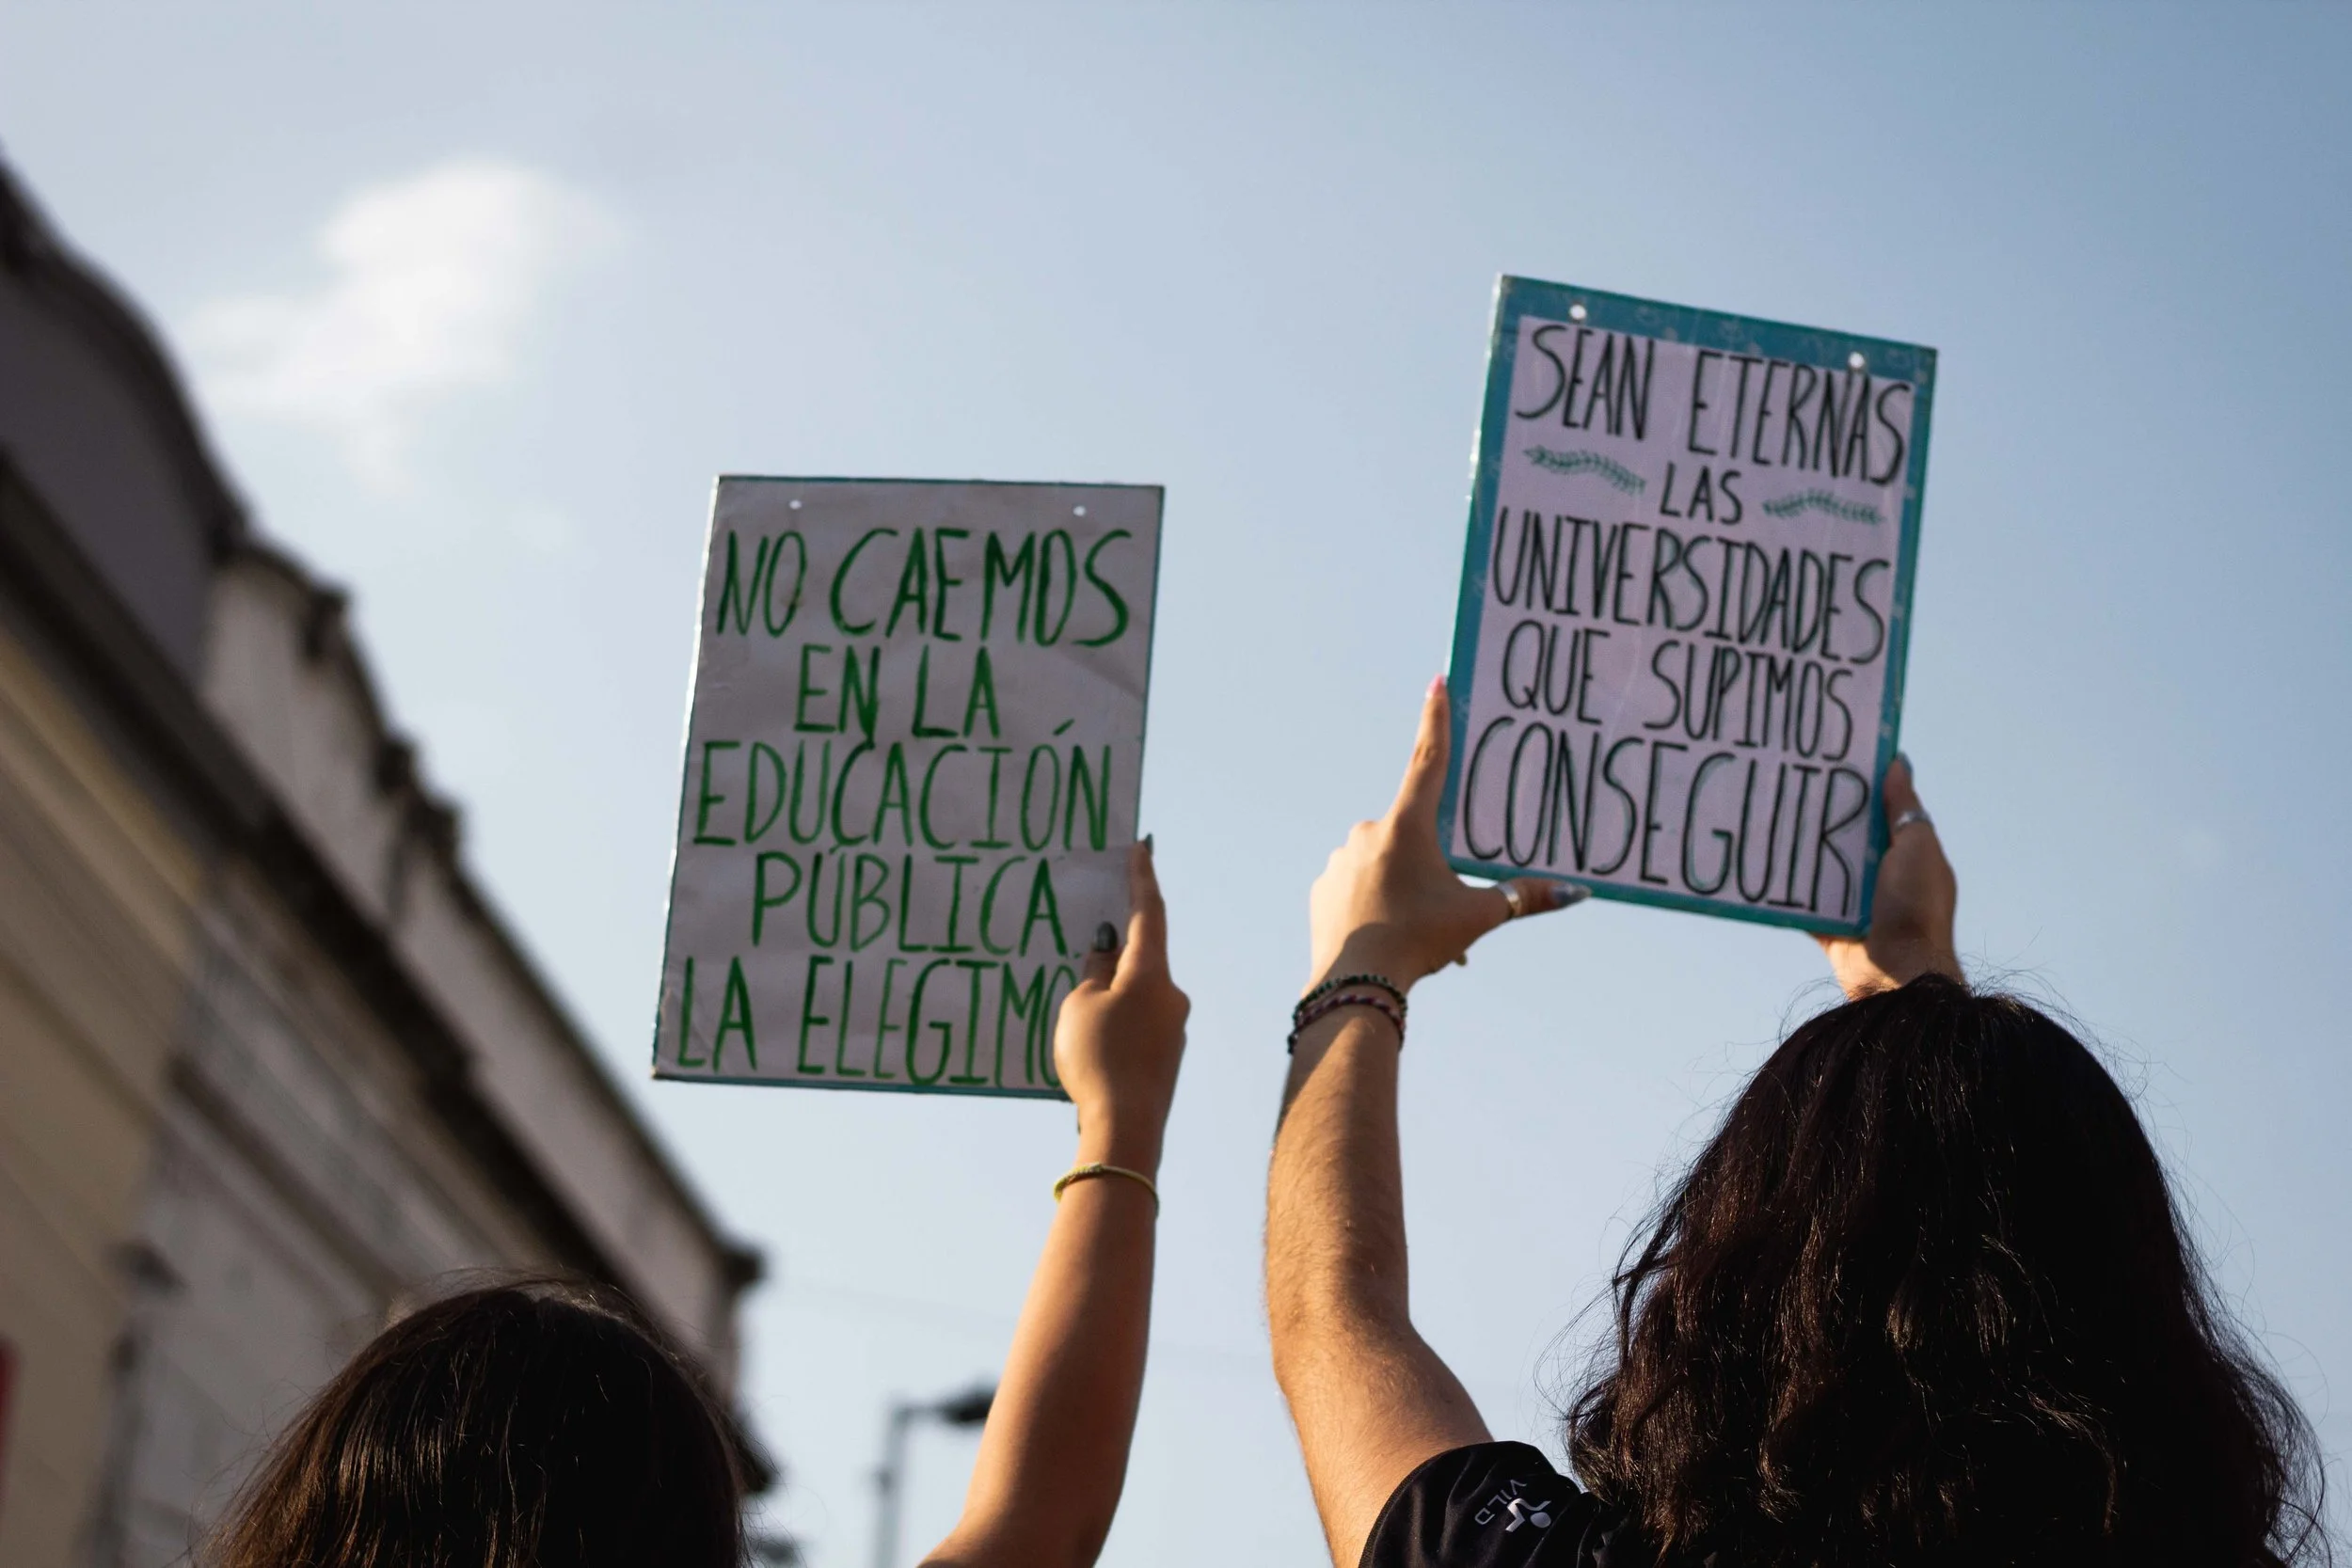 NO CAEMOS
EN LA
EDUCACIÓN
PÚBLICA
LA ELEGIMO
SEAN ETERNAS
LAS
UNIVERSIDADES
QUE SUPIMOS
CONSEGUIR
VILD